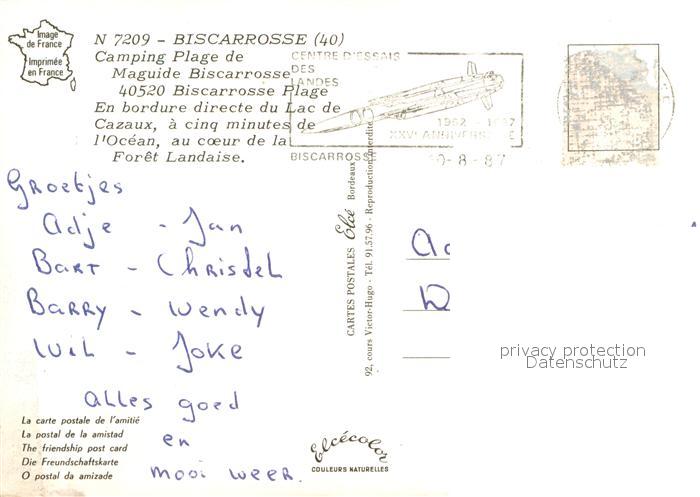 Image
de France
Imprimée
en France
N 7209 - BISCARROSSE (40)
Camping Plage de
Maguide Biscarrosse
40520 Biscarrosse Plage
En bordure directe du Lac de
Cazaux, à cinq minutes de
l'Océan, au cœur de la
Forêt Landaise.
CENTRE D'ESSAIS
DES
LANDES
1962 - 1987
XXVe ANNIVERSAIRE
BISCARROSSE
0-8-87
Groetjes
Adje - Jan
Bart - Christel
Barry - Wendy
Wil - Joke
Alles goed
en
mooi weer.
La carte postale de l'amitié
La postal de la amistad
The friendship post card
Die Freundschaftskarte
O postal da amizade
CARTES POSTALES Elcé Bordeaux
92, cours Victor-Hugo - Tél. 91.57.96 - Reproduction interdite
Elcécolor
COULEURS NATURELLES
privacy protection
Datenschutz